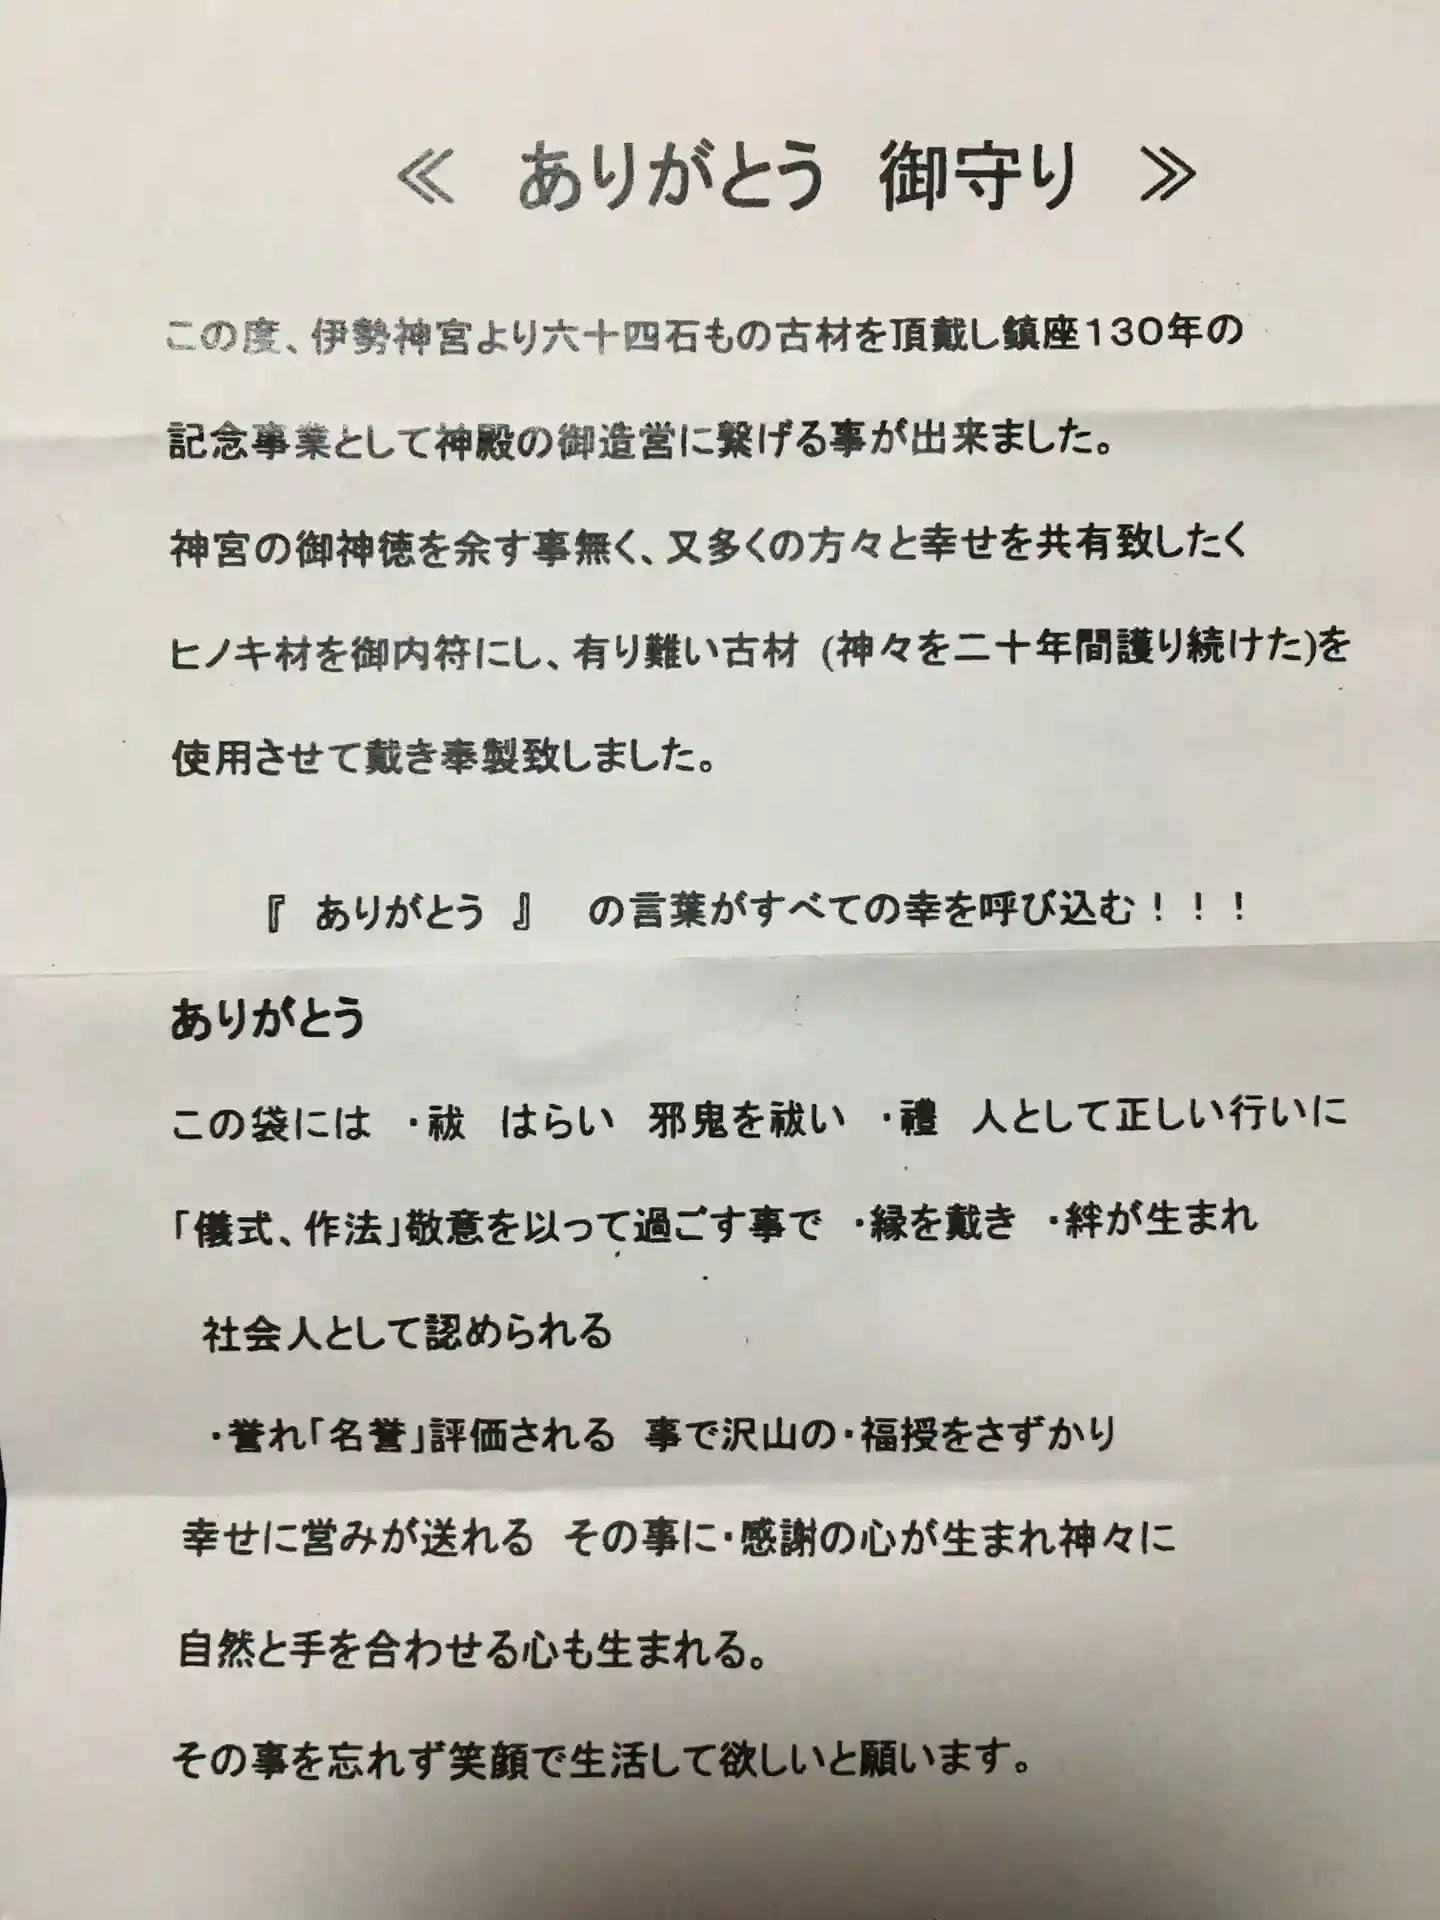 ≪　ありがとう　御守り　≫
この度、伊勢神宮より六十四石もの古材を頂戴し鎮座130年の
記念事業として神殿の御造営に繋げる事が出来ました。
神宮の御神徳を余す事無く、又多くの方々と幸せを共有致したく
ヒノキ材を御内符にし、有り難い古材 (神々を二十年間護り続けた)を
使用させて戴き奉製致しました。
『　ありがとう　』　の言葉がすべての幸を呼び込む！！！
ありがとう
この袋には　・祓　はらい　邪鬼を祓い　・禮　人として正しい行いに
「儀式、作法」敬意を以って過ごす事で　・縁を戴き　・絆が生まれ
社会人として認められる
・誉れ「名誉」評価される　事で沢山の・福授をさずかり
幸せに営みが送れる　その事に・感謝の心が生まれ神々に
自然と手を合わせる心も生まれる。
その事を忘れず笑顔で生活して欲しいと願います。